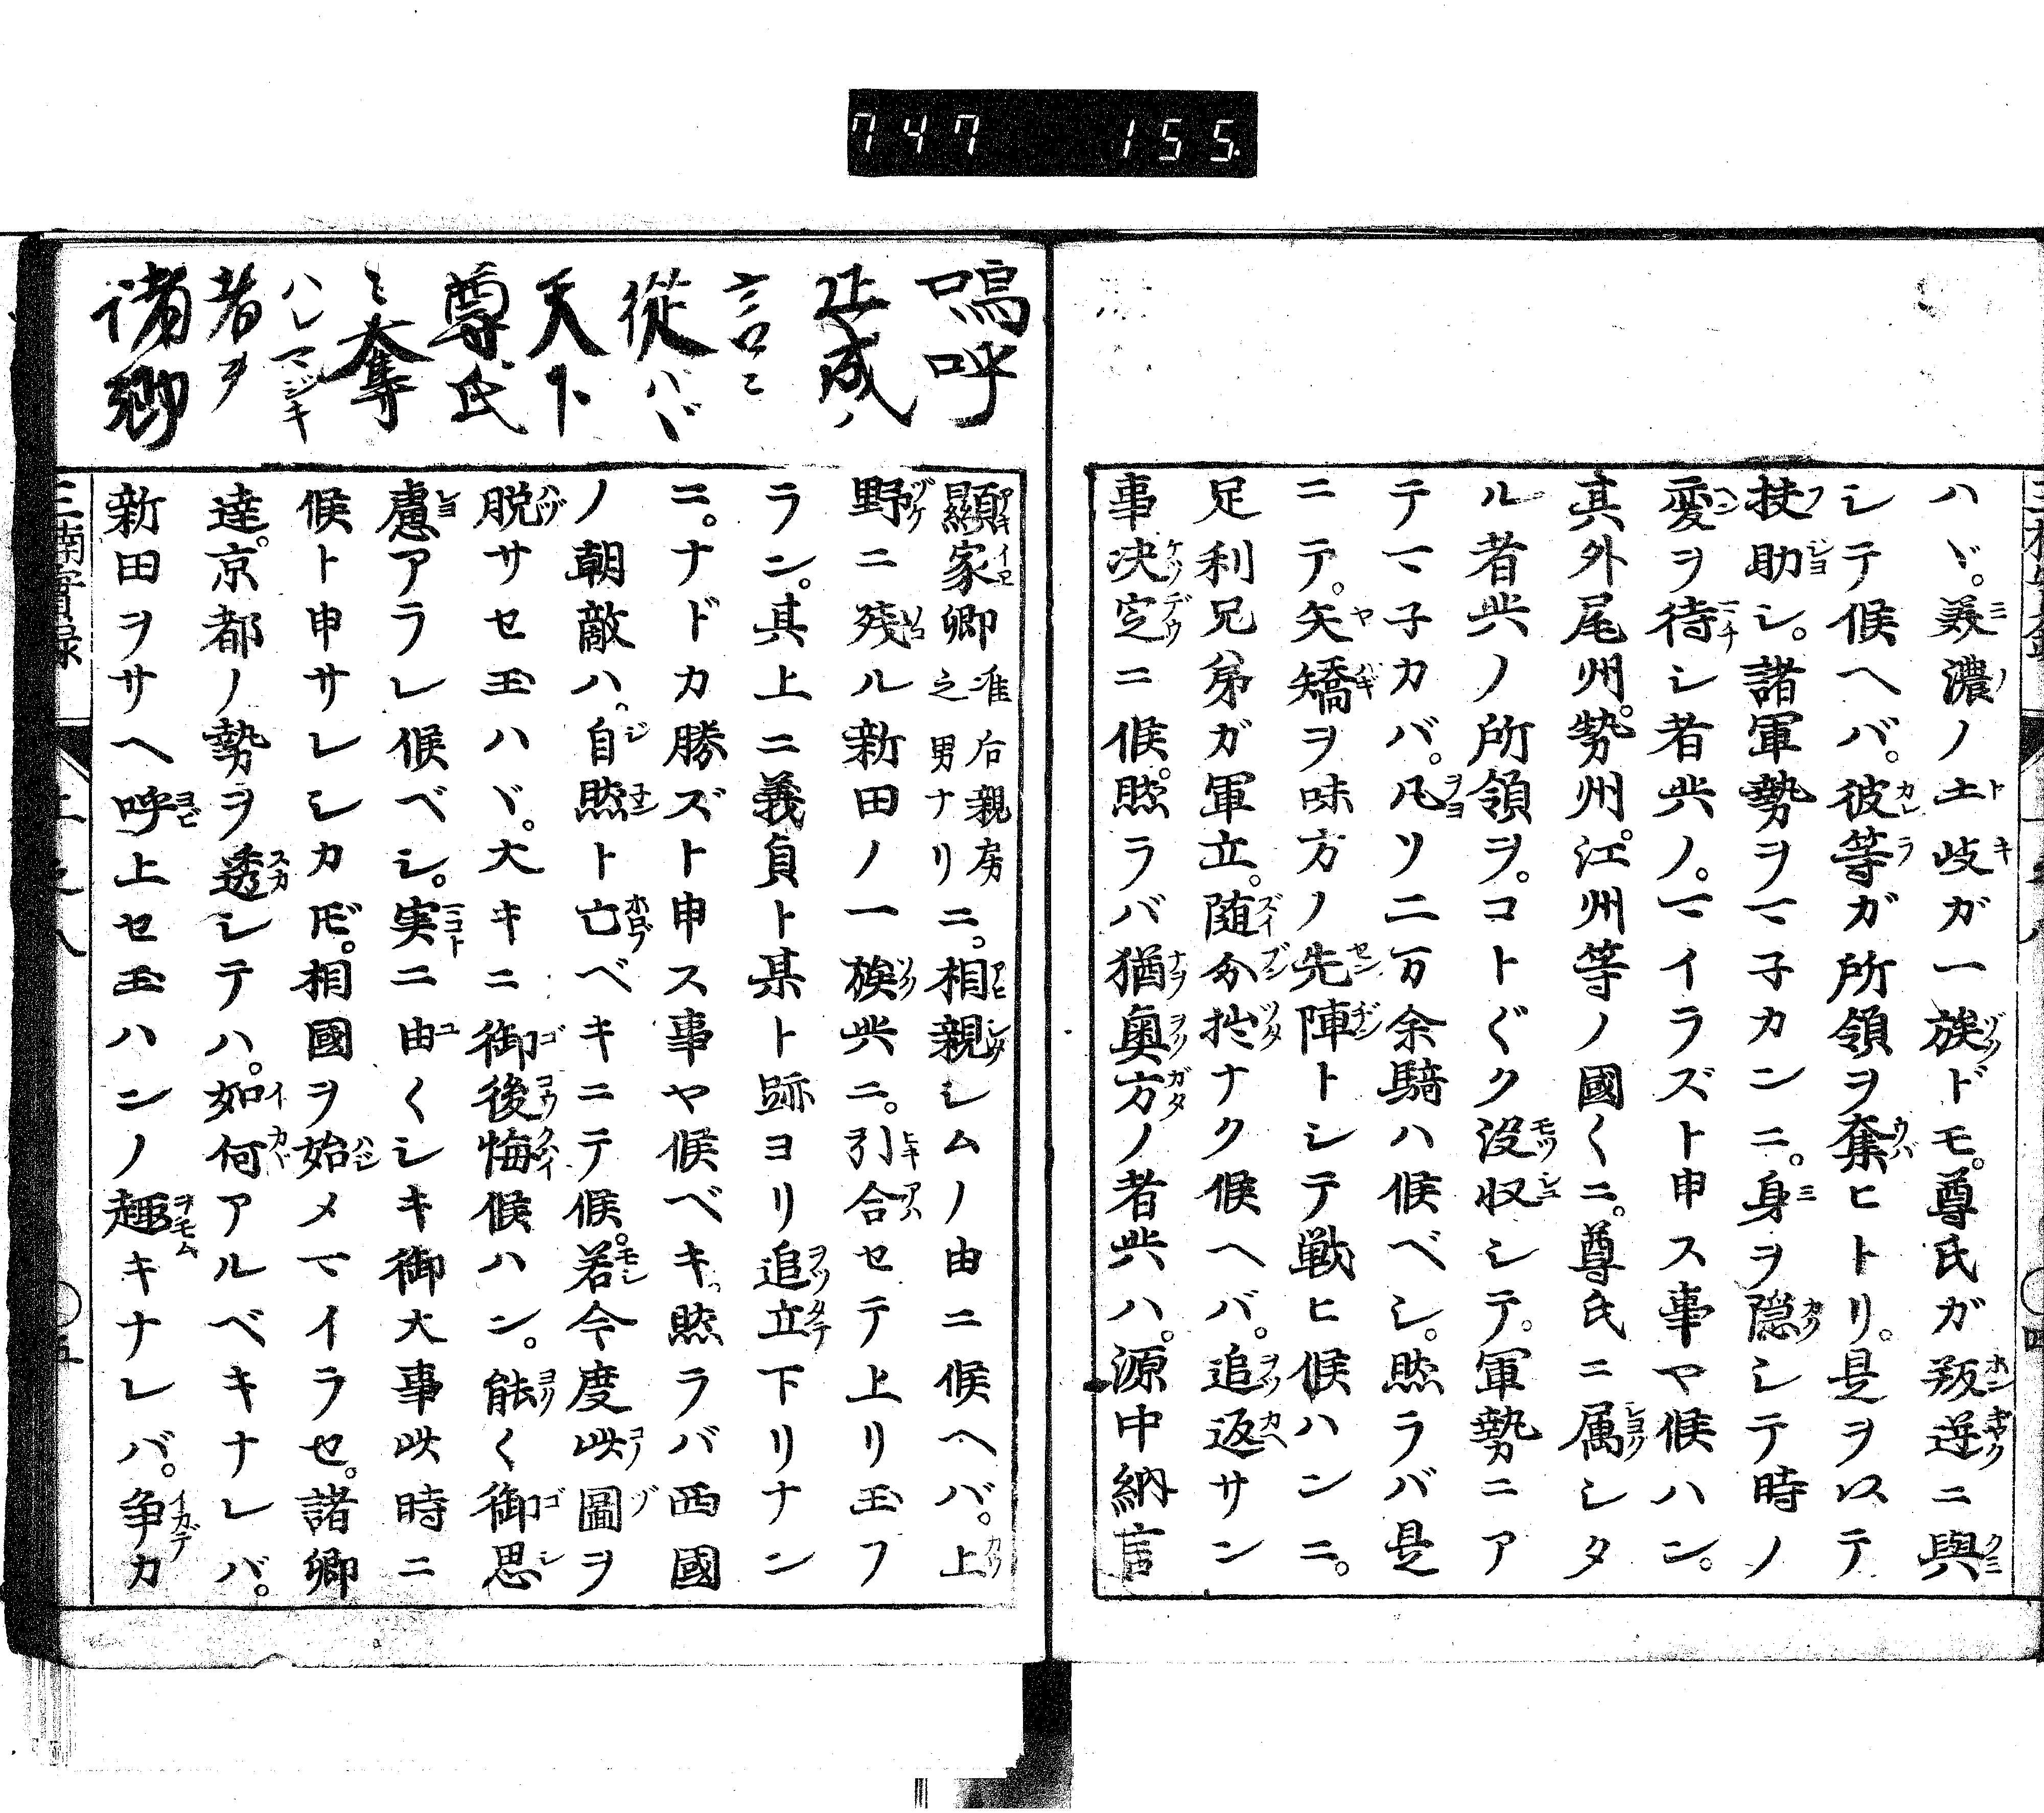 747 155.
ハヾ。美濃ノ土岐ガ一族ドモ。尊氏ガ叛逆ニ與
シテ候ヘバ。彼等ガ所領ヲ奪ヒトリ。是ヲ以テ
扶助シ。諸軍勢ヲマ子カンニ。身ヲ隠シテ時ノ
変ヲ待シ者共ノ。マイラズト申ス事ヤ候ハン。
其外尾州。勢州。江州等ノ國〱ニ。尊氏ニ属シタ
ル者共ノ所領ヲ。コトグク没収シテ。軍勢ニア
テマ子カバ。凡ソ二万余騎ハ候ベシ。然ラバ是
ニテ。矢矯ヲ味方ノ先陣トシテ戦ヒ候ハンニ。
足利兄弟ガ軍立。随分拙ナク候ヘバ。追返サン
事决定ニ候。然ラバ猶奥方ノ者共ハ。源中納言
嗚呼
正成ノ
言ニ
從ハヾ
天下
尊氏
ミ奪
ハレマジキ
者ヲ
諸卿
顯家卿准后親房之男ナリニ。相親シムノ由ニ候ヘバ。上
野ニ残ル新田ノ一族共ニ。引合セテ上リ玉フ
ラン。其上ニ義貞ト某ト跡ヨリ追立下リナン
ニ。ナドカ勝ズト申ス事ヤ候ベキ。然ラバ西國
ノ朝敵ハ。自然ト亡ベキニテ候。若今度此圖ヲ
脱サセ玉ハヾ。大キニ御後悔候ハン。能〱御思
慮アラレ候ベシ。実ニ由〱シキ御大事此時ニ
候ト申サレシカ𪜈。相國ヲ始メマイラセ。諸卿
達。京都ノ勢ヲ透シテハ。如何アルベキナレバ。
新田ヲサヘ呼上セ玉ハンノ趣キナレバ。争カ
三楠實録 上之八 五